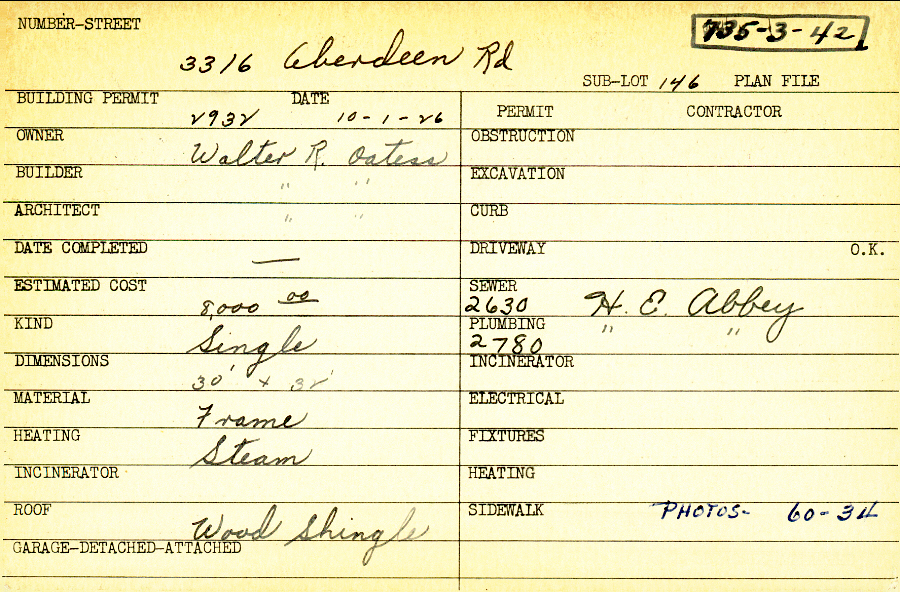 NUMBER-STREET
735-3-42
3316 Aberdeen Rd
SUB-LOT 146 PLAN FILE
BUILDING PERMIT DATE
2932 10-1-26
PERMIT CONTRACTOR
OWNER Walter R. Oatess
OBSTRUCTION
BUILDER " "
EXCAVATION
ARCHITECT " "
CURB
DATE COMPLETED —
DRIVEWAY O.K.
ESTIMATED COST 8,000 00
SEWER
2630 H. E. Abbey
KIND Single
PLUMBING " "
2780
DIMENSIONS 30' x 32'
INCINERATOR
MATERIAL Frame
ELECTRICAL
HEATING Steam
FIXTURES
INCINERATOR
HEATING
ROOF Wood Shingle
SIDEWALK PHOTOS- 60-34
GARAGE-DETACHED-ATTACHED